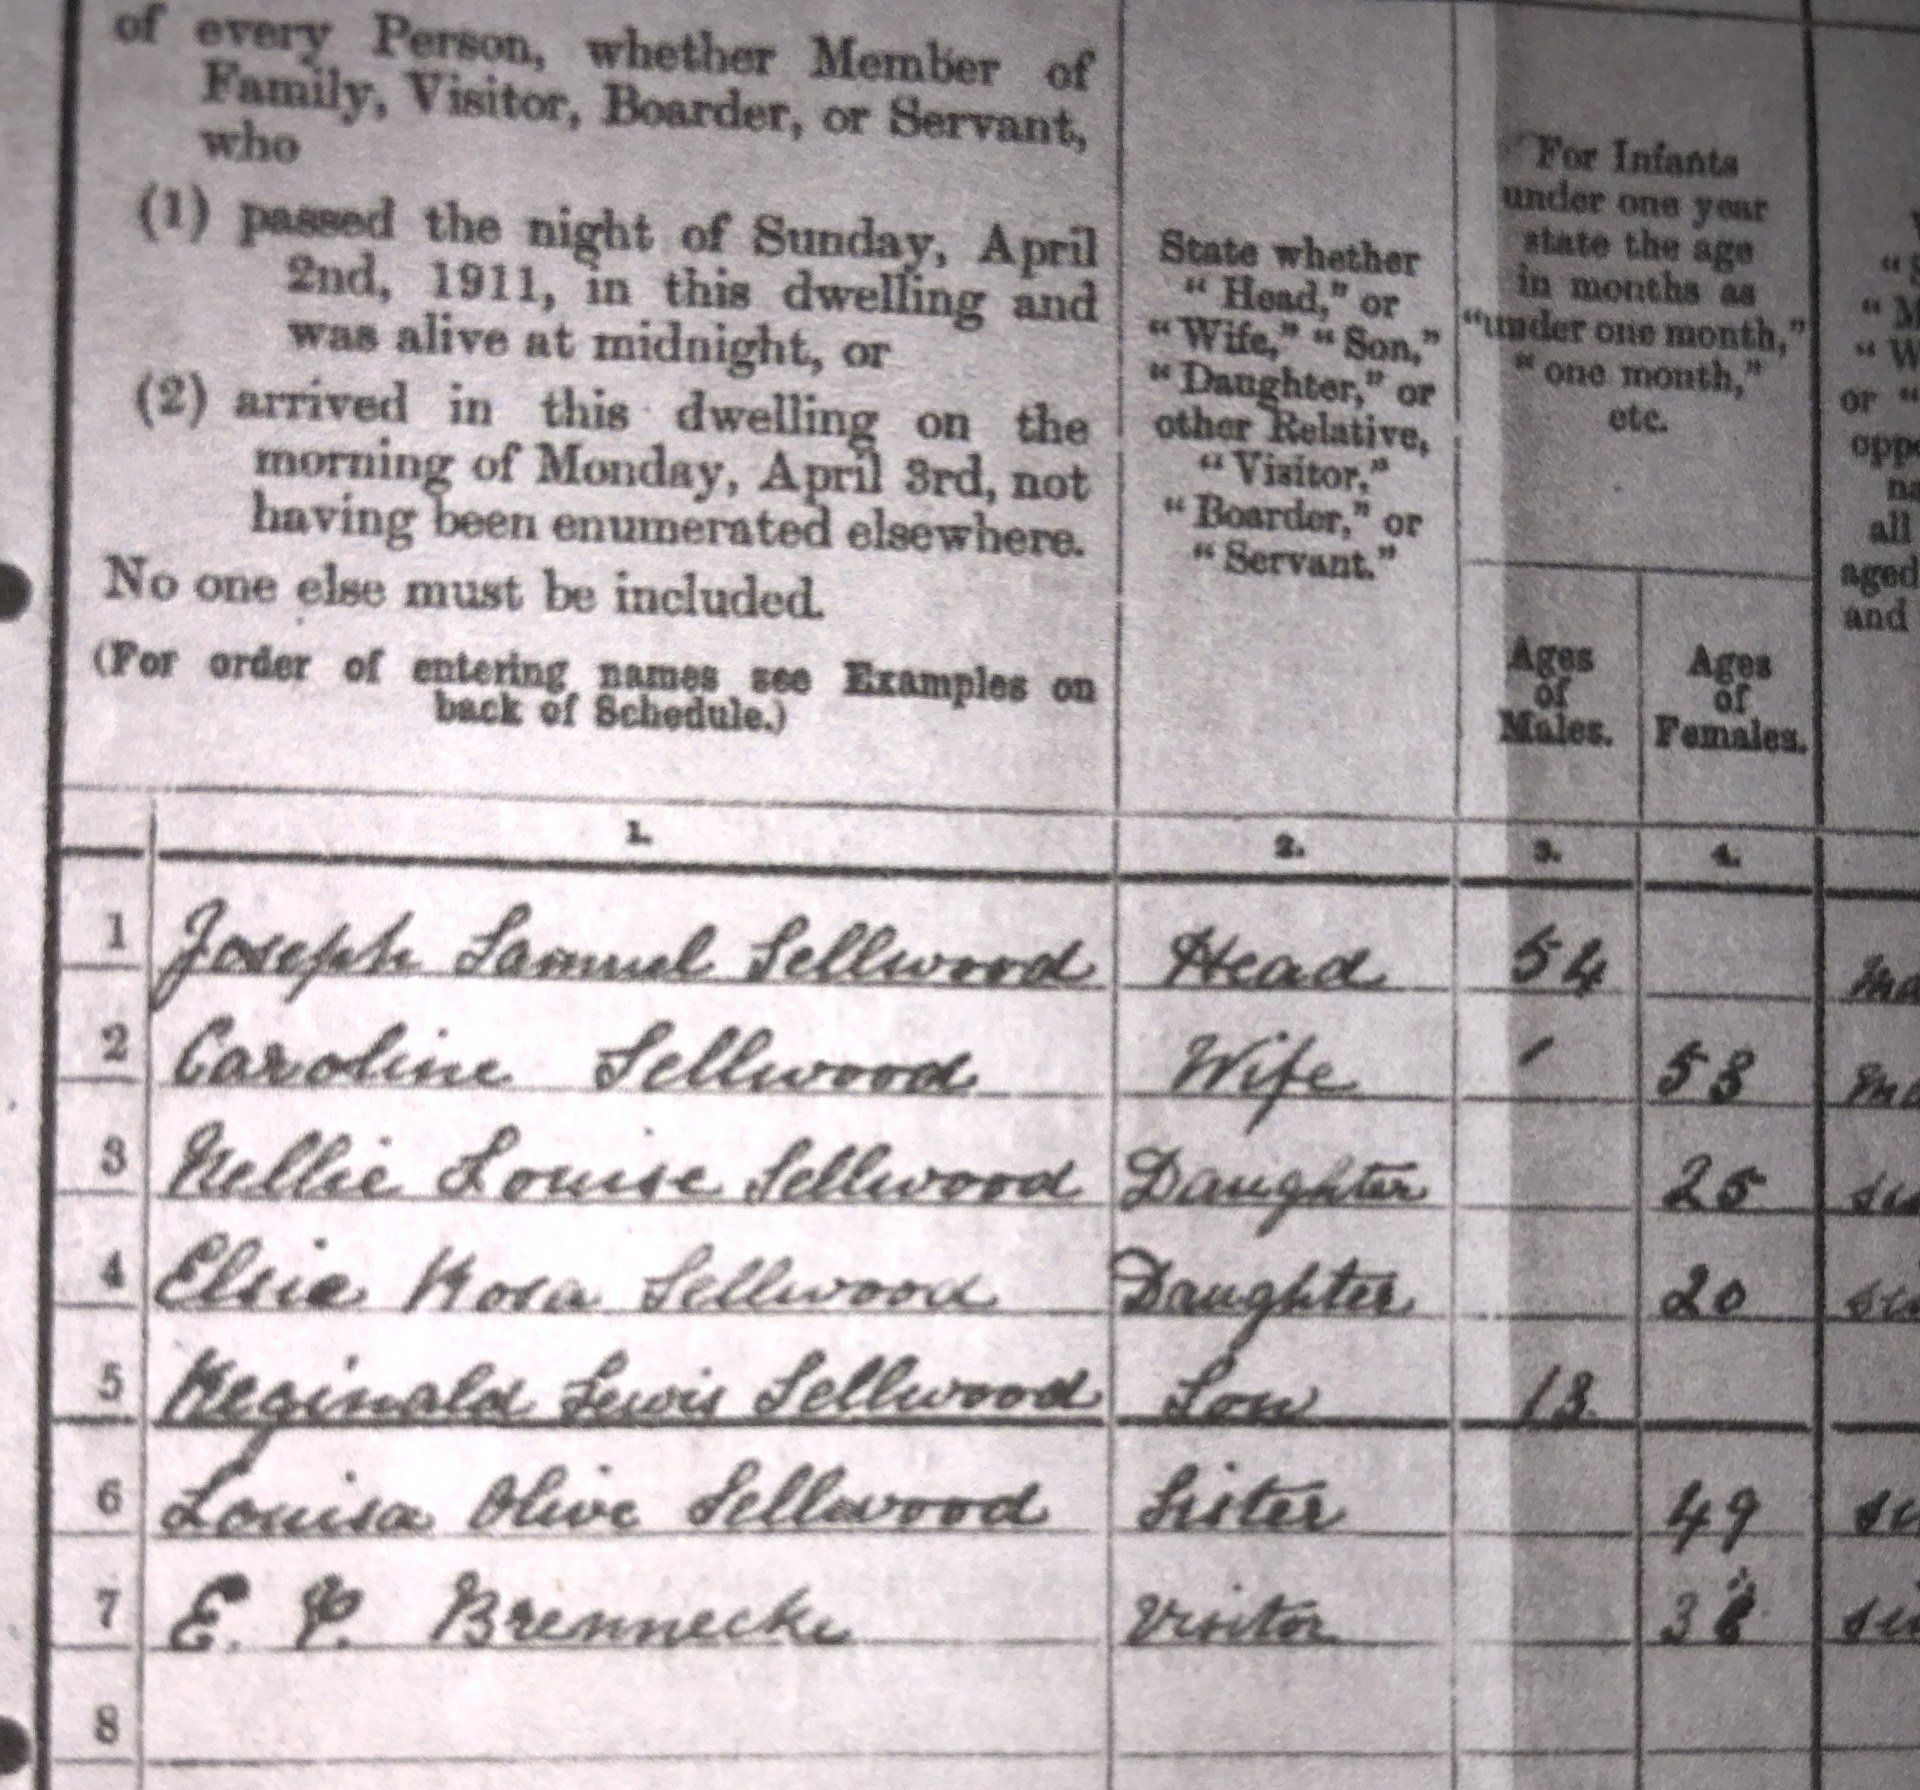 of every Person, whether Member of
Family, Visitor, Boarder, or Servant,
who
(1) passed the night of Sunday, April
2nd, 1911, in this dwelling and
was alive at midnight, or
(2) arrived in this dwelling on the
morning of Monday, April 3rd, not
having been enumerated elsewhere.
No one else must be included.
(For order of entering names see Examples on
back of Schedule.)
State whether
"Head," or
"Wife," "Son,"
"Daughter," or
other Relative,
"Visitor,"
"Boarder," or
"Servant."
For Infants
under one year
state the age
in months as
"under one month,"
"one month,"
etc.
Ages
of
Males.
Ages
of
Females.
or "
all
aged
and
1. 2. 3. 4.
1 Joseph Samuel Sellwood Head 54
2 Caroline Sellwood Wife 53
3 Nellie Louise Sellwood Daughter 25
4 Elsie Rosa Sellwood Daughter 20
5 Reginald Lewis Sellwood Son 13
6 Louisa Olive Sellwood Sister 49
7 E. P. Brennecke Visitor
8